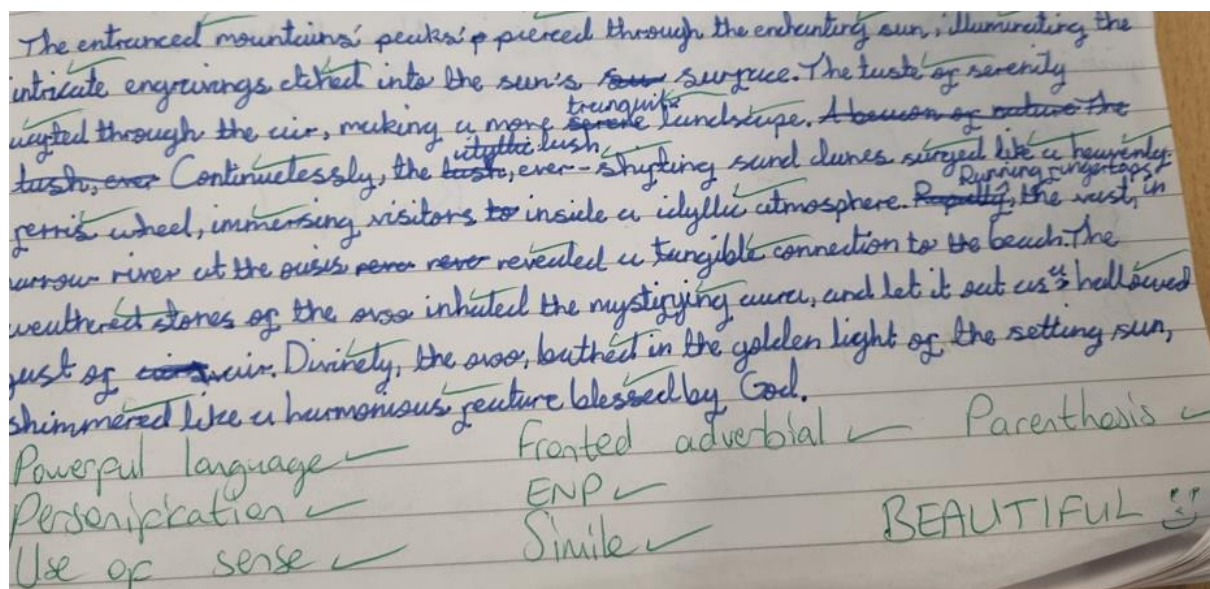 The entranced mountains' peaks' pierced through the enchanting sun, illuminating the
intricate engravings etched into the sun's surface. The taste of serenity
wafted through the air, making a more tranquil landscape. A beacon of nature the
lush, ever Continuelessly, the idyllic lush, ever-shifting sand dunes surged like a heavenly
ferris wheel, immersing visitors to inside a idyllic atmosphere. Rapidly, Running fingertaps, the vast, in
arrow river at the oasis never revealed a tangible connection to the beach. The
weathered stones of the ovoo inhaled the mystifying aura, and let it out as a hallowed
gust of air. Divinely, the ovoo, bathed in the golden light of the setting sun,
shimmered like a harmonious feature blessed by God.
Powerful language Fronted adverbial Parenthesis
Personification ENP
Use of sense Simile BEAUTIFUL